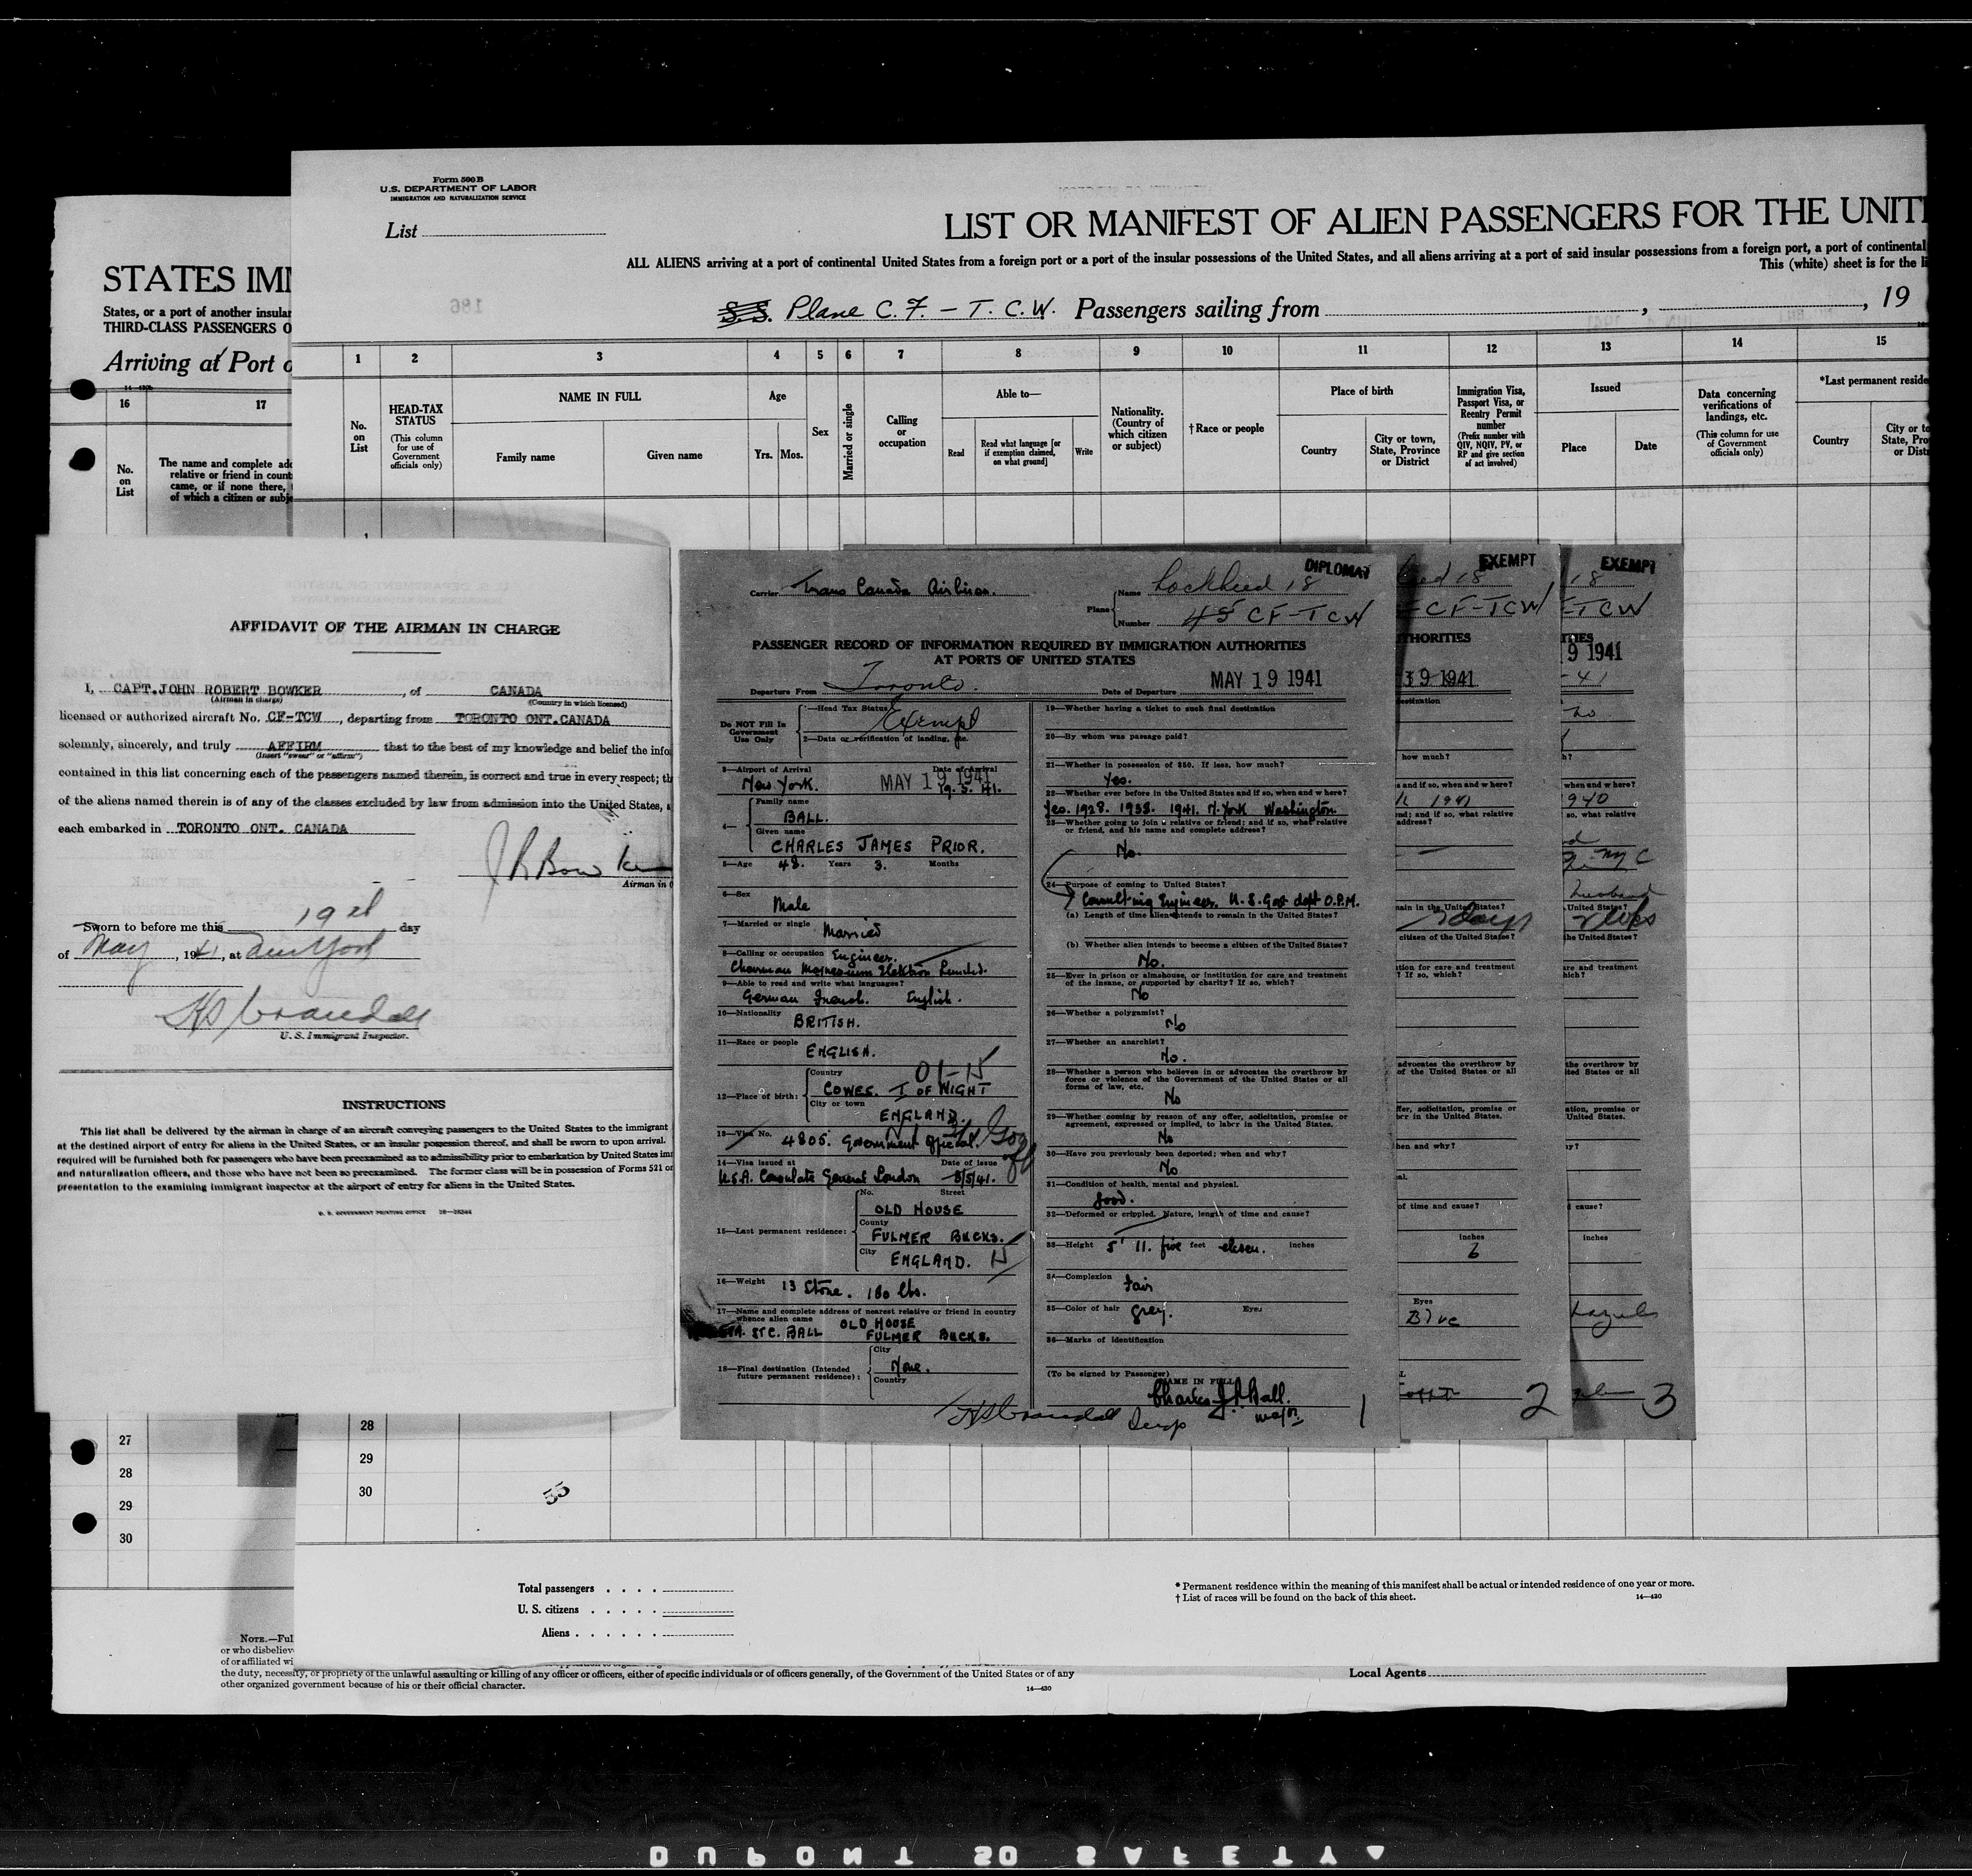 Form 500 B
U.S. DEPARTMENT OF LABOR
IMMIGRATION AND NATURALIZATION SERVICE
List
LIST OR MANIFEST OF ALIEN PASSENGERS FOR THE UNIT
ALL ALIENS arriving at a port of continental United States from a foreign port or a port of the insular possessions of the United States, and all aliens arriving at a port of said insular possessions from a foreign port, a port of continental
This (white) sheet is for the li
S.S. Plane C. F. - T. C. W. Passengers sailing from , , 19
186
STATES IM
States, or a port of another insular
THIRD-CLASS PASSENGERS O
Arriving at Port o
16 17
No. on List
The name and complete add
relative or friend in count
came, or if none there,
of which a citizen or subje
1 2 3 4 5 6 7 8 9 10 11 12 13 14 15
No. on List
HEAD-TAX STATUS
(This column for use of Government officials only)
NAME IN FULL
Family name Given name
Age
Yrs. Mos.
Sex
Married or single
Calling or occupation
Able to—
Read
Read what language [or if exemption claimed, on what ground]
Write
Nationality. (Country of which citizen or subject)
†Race or people
Place of birth
Country
City or town, State, Province or District
Immigration Visa, Passport Visa, or Reentry Permit number
(Prefix number with QIV, NQIV, PV, or RP and give section of act involved)
Issued
Place Date
Data concerning verifications of landings, etc.
(This column for use of Government officials only)
*Last permanent reside
Country
City or to
State, Pro
or Distr
1
AFFIDAVIT OF THE AIRMAN IN CHARGE
I, CAPT.JOHN ROBERT BOWKER , of CANADA
(Airman in charge) (Country in which licensed)
licensed or authorized aircraft No. CF-TCW , departing from TORONTO ONT.CANADA
solemnly, sincerely, and truly AFFIRM that to the best of my knowledge and belief the info
(Insert "swear" or "affirm")
contained in this list concerning each of the passengers named therein, is correct and true in every respect; th
of the aliens named therein is of any of the classes excluded by law from admission into the United States, a
each embarked in TORONTO ONT. CANADA
J R Bowker
Airman in
Sworn to before me this 19th day
of May , 1941, at New York
HS Crandall
U. S. Immigrant Inspector.
INSTRUCTIONS
This list shall be delivered by the airman in charge of an aircraft conveying passengers to the United States to the immigrant
at the destined airport of entry for aliens in the United States, or an insular possession thereof, and shall be sworn to upon arrival.
required will be furnished both for passengers who have been preexamined as to admissibility prior to embarkation by United States imm
and naturalization officers, and those who have not been so preexamined. The former class will be in possession of Forms 521 or
presentation to the examining immigrant inspector at the airport of entry for aliens in the United States.
U. S. GOVERNMENT PRINTING OFFICE
DIPLOMAT
Carrier Trans Canada Airlines.
Plane Name Lockheed 18
Number 45 CF-TCW
PASSENGER RECORD OF INFORMATION REQUIRED BY IMMIGRATION AUTHORITIES
AT PORTS OF UNITED STATES
Departure From Toronto. Date of Departure MAY 19 1941
Do NOT Fill In Government Use Only
1—Head Tax Status Exempt
2—Data or verification of landing, etc.
3—Airport of Arrival Date of Arrival
New York. MAY 19 1941 19. 5. 41.
4—
Family name
BALL.
Given name
CHARLES JAMES PRIOR.
5—Age 48. Years 3. Months
6—Sex
Male
7—Married or single Married
8—Calling or occupation Engineer.
Chairman Magnesium Elektron Limited.
9—Able to read and write what languages?
German French. English.
10—Nationality
BRITISH.
11—Race or people
ENGLISH.
01-15
12—Place of birth:
Country
COWES. I OF WIGHT
City or town
ENGLAND.
13—Visa No. 4805. Government Official. Gov Off
14—Visa issued at Date of issue
U.S.A. Consulate General London 8/5/41.
15—Last permanent residence:
No. Street
OLD HOUSE
County
FULMER BUCKS.
City
ENGLAND. 15
16—Weight 13 Stone. 180 lbs.
17—Name and complete address of nearest relative or friend in country
whence alien came OLD HOUSE
ST C. BALL FULMER BUCKS.
18—Final destination (Intended future permanent residence):
City
None.
Country
19—Whether having a ticket to such final destination
20—By whom was passage paid?
21—Whether in possession of $50. If less, how much?
Yes.
22—Whether ever before in the United States and if so, when and where?
Yes. 1928. 1938. 1941. N. York Washington
23—Whether going to join a relative or friend; and if so, what relative
or friend, and his name and complete address?
No.
24—Purpose of coming to United States?
Consulting Engineer. U.S. Gov dept O.P.M.
(a) Length of time alien intends to remain in the United States?
(b) Whether alien intends to become a citizen of the United States?
No.
25—Ever in prison or almshouse, or institution for care and treatment
of the insane, or supported by charity? If so, which?
No
26—Whether a polygamist?
No
27—Whether an anarchist?
No.
28—Whether a person who believes in or advocates the overthrow by
force or violence of the Government of the United States or all
forms of law, etc.
No
29—Whether coming by reason of any offer, solicitation, promise or
agreement, expressed or implied, to labor in the United States.
No
30—Have you previously been deported; when and why?
No
31—Condition of health, mental and physical.
good.
32—Deformed or crippled. Nature, length of time and cause?
33—Height 5' 11. five feet eleven. inches
34—Complexion
Fair
35—Color of hair grey. Eyes
36—Marks of identification
(To be signed by Passenger)
NAME IN FULL
Charles J. P. Ball.
Major.
HS Crandall
Insp
1
EXEMPT
18
CF-TCW
THORITIES
1941
how much?
1941
3 days
inches
6
Eyes
Blue
2
EXEMPT
18
TCW
9 1941
-41
1940
NYC
husband
2 wks
inches
hazel
3
27
28
29
30
28
29
30
55
Total passengers
U. S. citizens
Aliens
* Permanent residence within the meaning of this manifest shall be actual or intended residence of one year or more.
† List of races will be found on the back of this sheet.
14—430
NOTE.—Ful
or who disbeliev
of or affiliated wi
the duty, necessity, or propriety of the unlawful assaulting or killing of any officer or officers, either of specific individuals or of officers generally, of the Government of the United States or of any
other organized government because of his or their official character.
14—430
Local Agents
DUPONT SO SAFETY